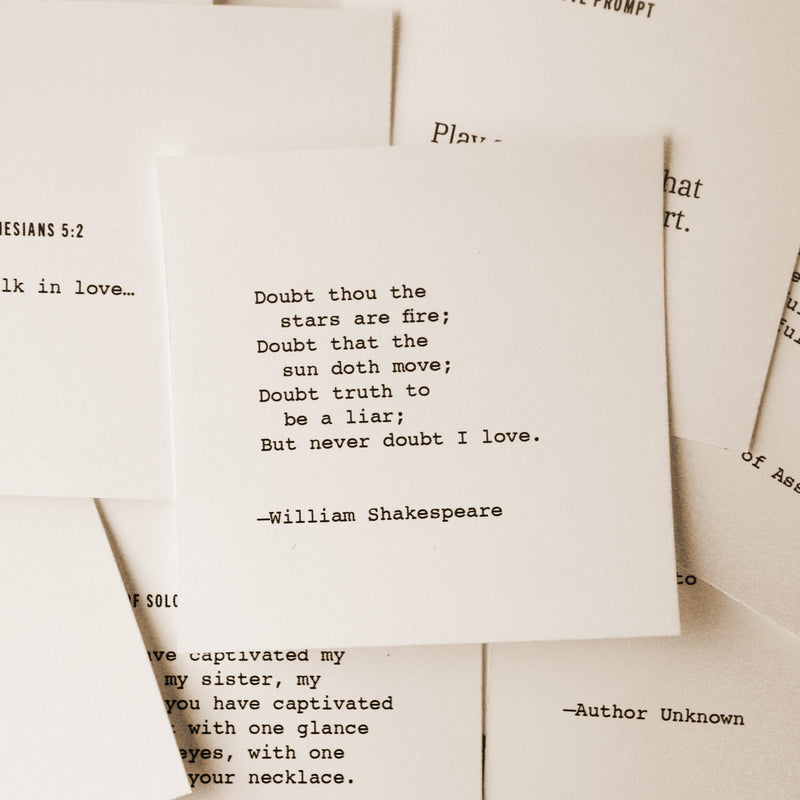 PROMPT
Play
hat
rt.
HESIANS 5:2
lk in love…
Doubt thou the
stars are fire;
Doubt that the
sun doth move;
Doubt truth to
be a liar;
But never doubt I love.
—William Shakespeare
of Ass
to
OF SOLO
ve captivated my
my sister, my
you have captivated
with one glance
eyes, with one
your necklace.
—Author Unknown